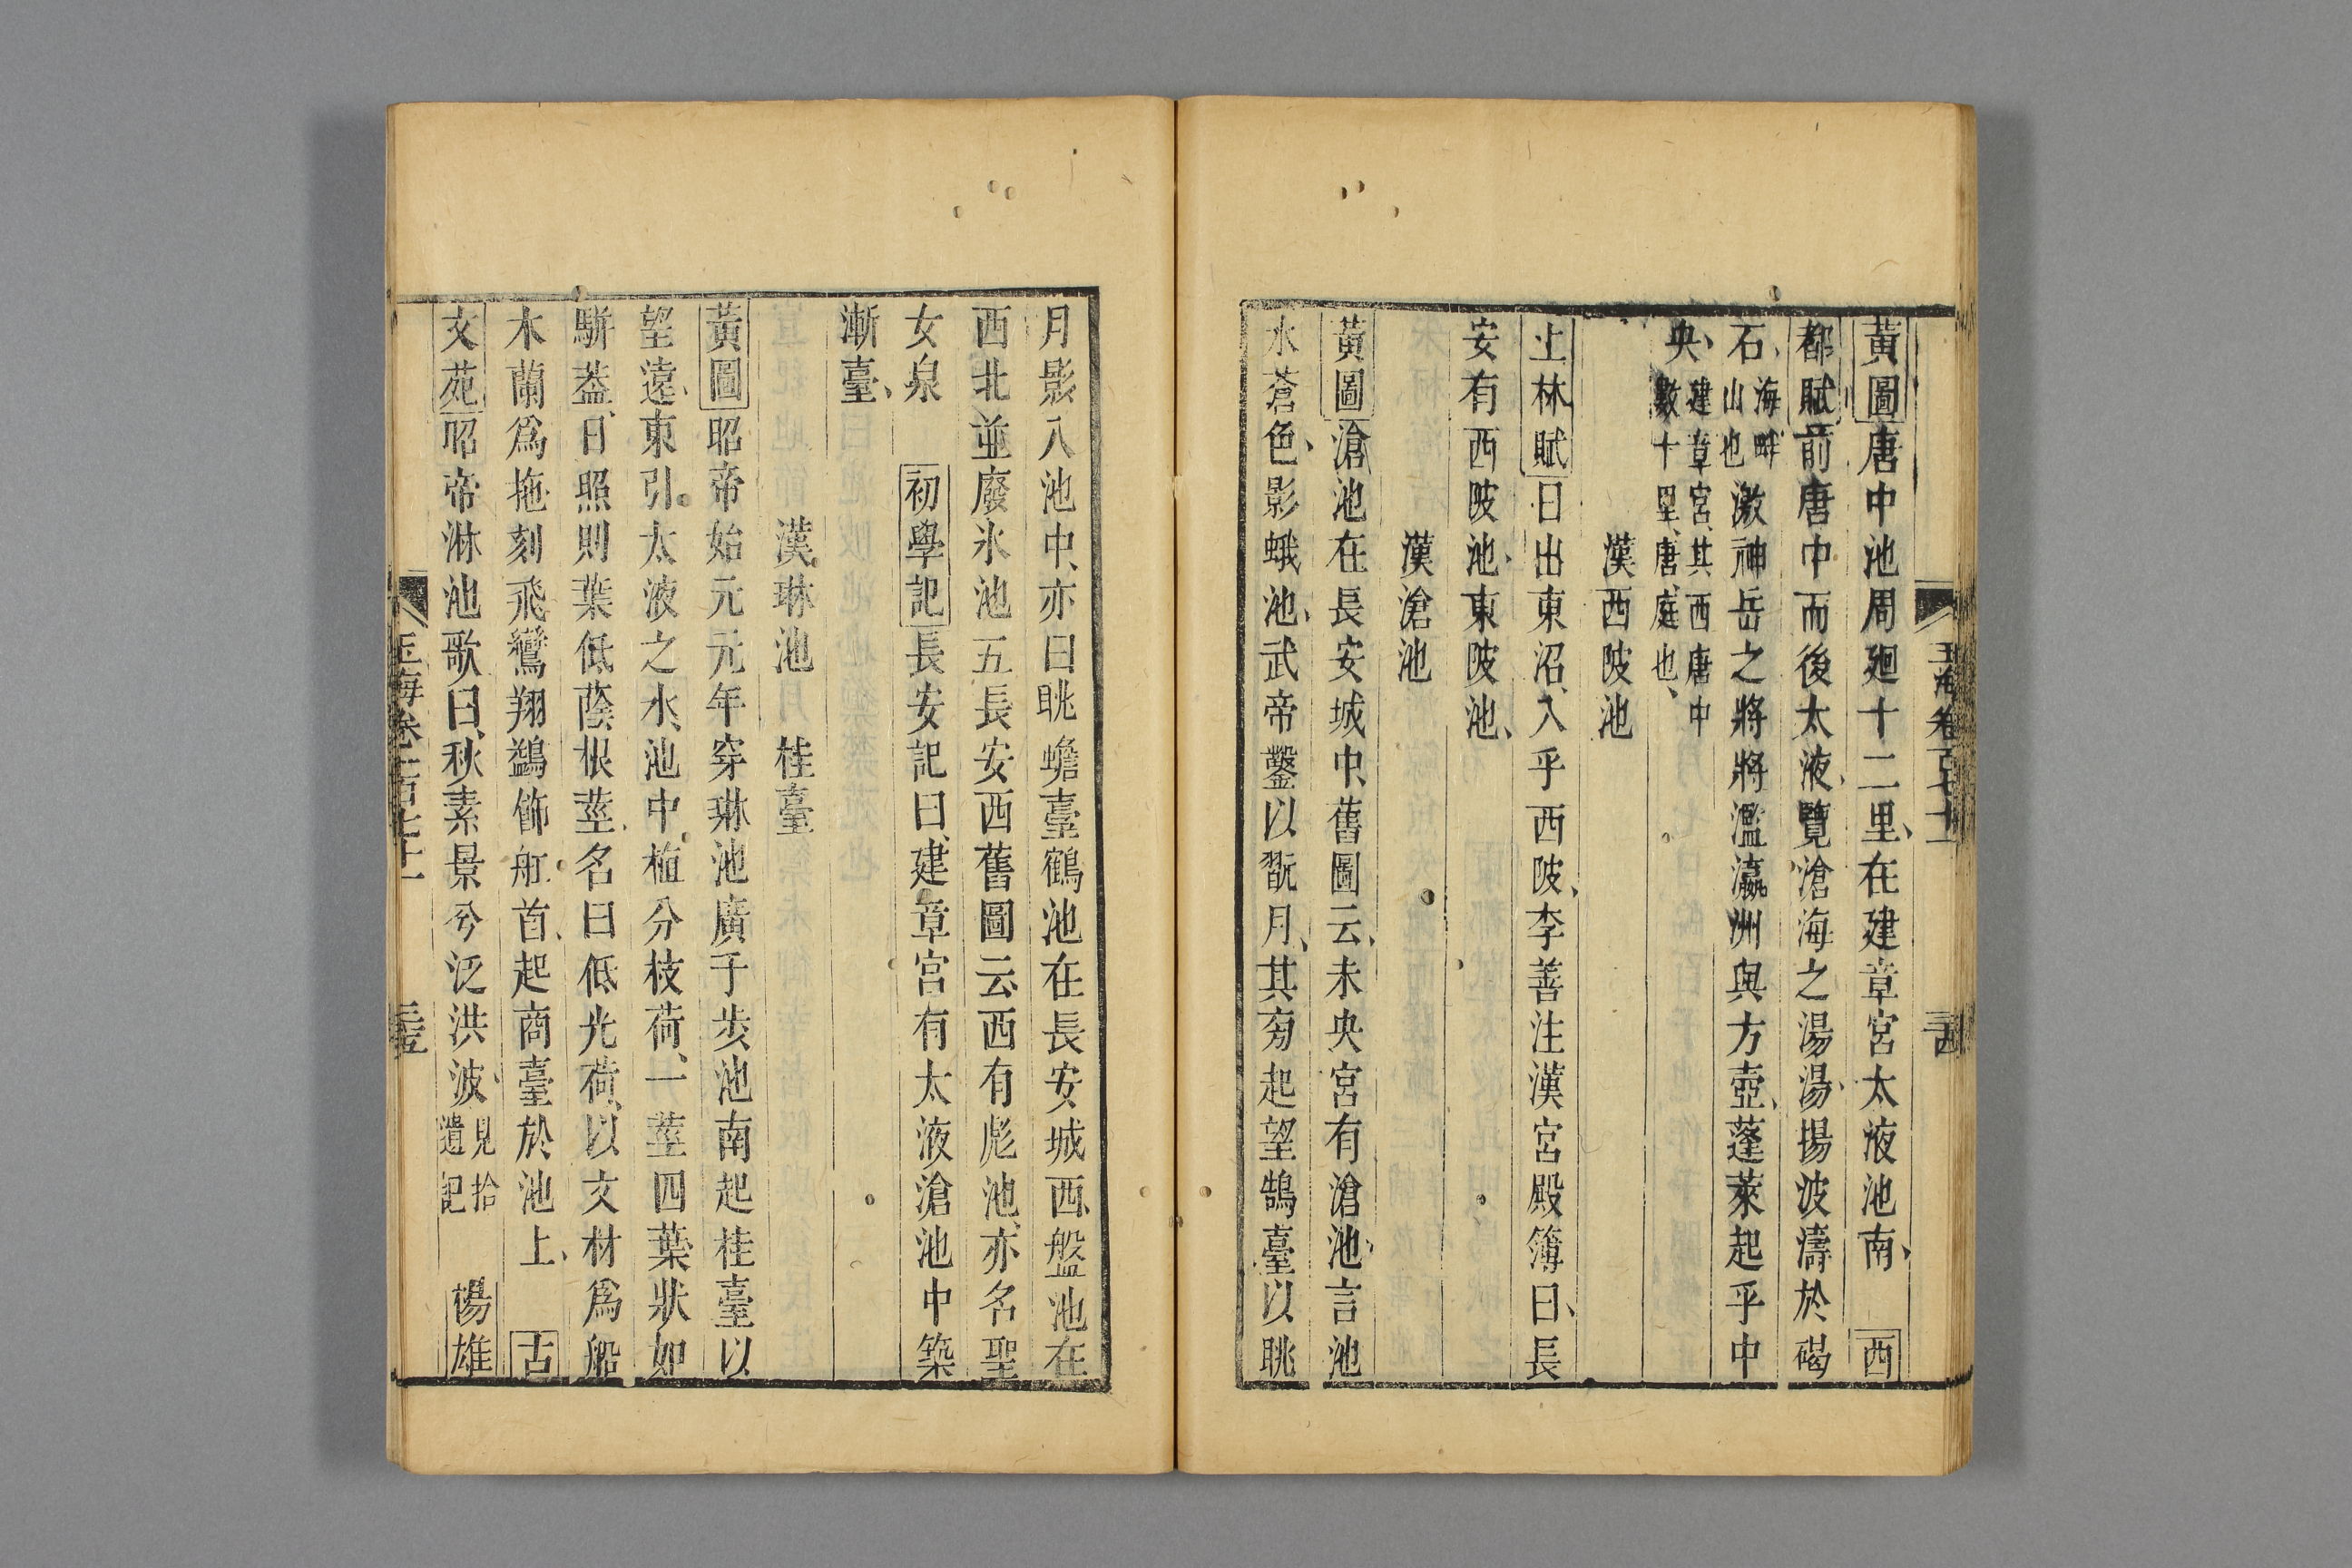 玉海卷百七十一
三四
黃圖唐中池周廻十二里、在建章宮太液池南、西
都賦前唐中而後太液、覽滄海之湯湯、揚波濤於碣
石、海畔山也激神岳之將將濫瀛洲與方壺、蓬萊起乎中
央、建章宮、其西唐中數十里、唐、庭也、
漢西陂池
上林賦日出東沼、入乎西陂、李善注漢宮殿簿曰、長
安有西陂池、東陂池、
漢滄池
黃圖滄池在長安城中、舊圖云、未央宮有滄池、言池
水蒼色、影蛾池、武帝鑿以翫月、其旁起望鵠臺以眺
月影入池中、亦曰眺蟾臺鶴池在長安城西、盤池在
西北並廢氷池五長安西舊圖云、西有彪池、亦名聖
女泉 初學記長安記曰、建章宮有太液滄池中築
漸臺、
漢琳池 桂臺
黃圖昭帝始元元年穿琳池廣千步、池南起桂臺以
望遠、東引太液之水、池中植分枝荷、一莖四葉狀如
駢葢、日照則葉低蔭根莖、名曰低光荷、以文材爲船
木蘭爲拖、刻飛鸞翔鷁飾舡首、起商臺於池上、 古
文苑昭帝淋池歌曰、秋素景兮泛洪波、見拾遺記 楊雄
玉海卷一百七十一
三五